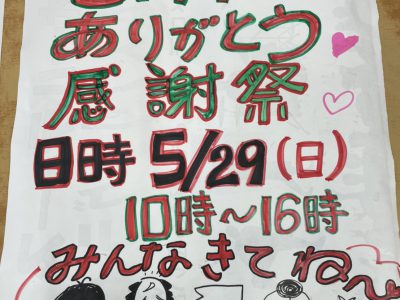 ありがとう
感謝祭
日時 5/29(日)
10時〜16時
みんなきてね〜